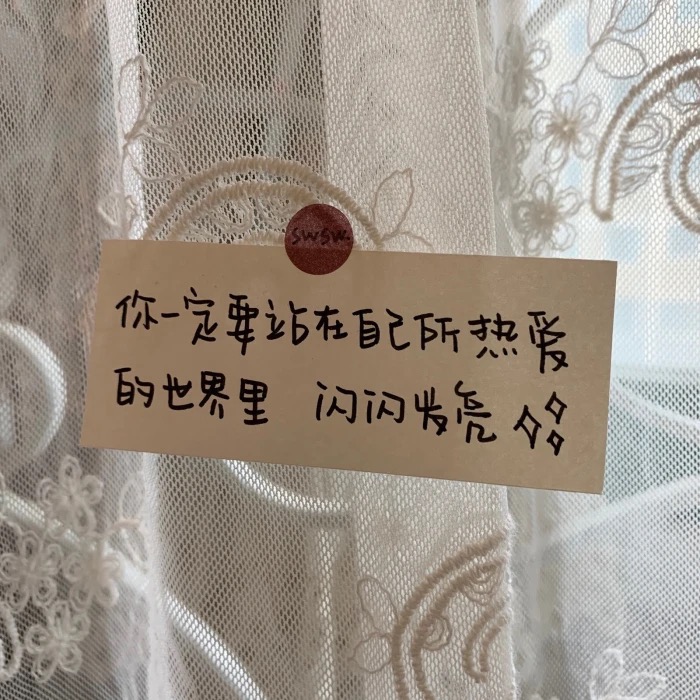 swsw.
你一定要站在自己所热爱
的世界里 闪闪发亮